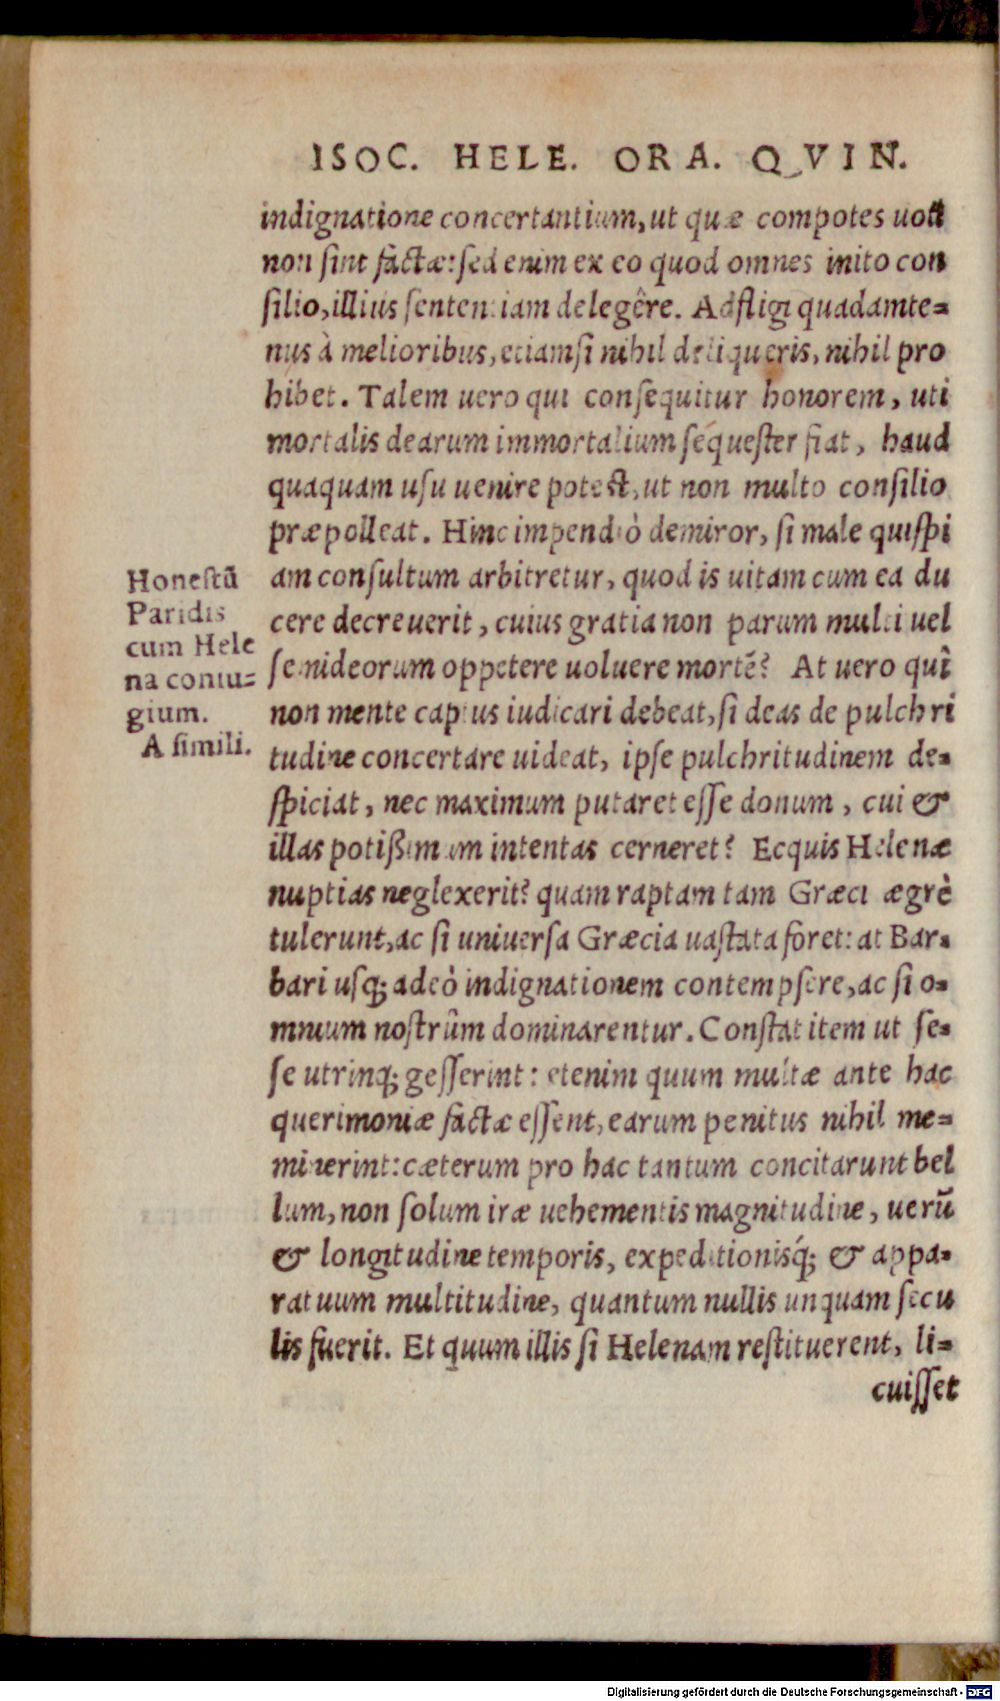 ISOC. HELE. ORA. QVIN.
indignatione concertantium, ut quæ compotes uoti
non sint factæ: sed enim ex eo quod omnes inito con
silio, illius sententiam delegêre. Adfligi quadamte=
nus à melioribus, etiamsi nihil deliqueris, nihil pro
hibet. Talem uero qui consequitur honorem, uti
mortalis dearum immortalium sequester fiat, haud
quaquam usu uenire potest, ut non multo consilio
præpolleat. Hinc impendiò demiror, si male quispi
am consultum arbitretur, quod is uitam cum ea du
cere decreuerit, cuius gratia non parum multi uel
semideorum oppetere uoluere mortē? At uero quî
non mente captus iudicari debeat, si deas de pulchri
tudine concertare uideat, ipse pulchritudinem de=
spiciat, nec maximum putaret esse donum, cui &
illas potißimum intentas cerneret? Ecquis Helenæ
nuptias neglexerit? quam raptam tam Græci ægrè
tulerunt, ac si uniuersa Græcia uastata foret: at Bar=
bari usq; adeò indignationem contempsere, ac si o=
mnium nostrûm dominarentur. Constat item ut se=
se utrinq; gesserint: etenim quum multæ ante hac
querimoniæ factæ essent, earum penitus nihil me=
minerint: cæterum pro hac tantum concitarunt bel
lum, non solum iræ uehementis magnitudine, uerū
& longitudine temporis, expeditionisq́; & appa=
ratuum multitudine, quantum nullis unquam secu
lis fuerit. Et quum illis si Helenam restituerent, li=
cuisset
Honestū
Paridis
cum Hele
na coniu=
gium.
A simili.
Digitalisierung gefördert durch die Deutsche Forschungsgemeinschaft - DFG